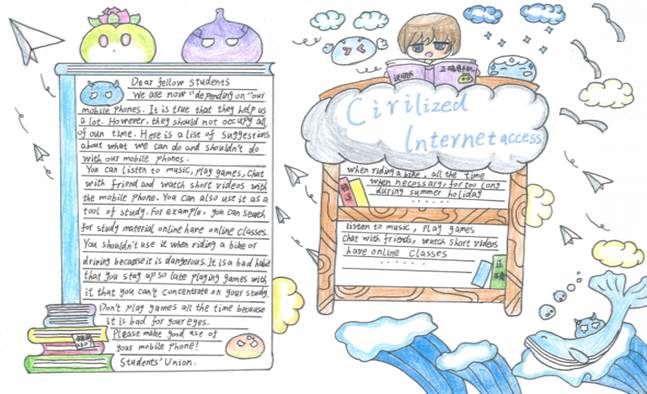 Dear fellow students
We are now "depending on" our
mobile phones. It is true that they help us
a lot. However, they should not occupy all
of our time. Here is a list of suggestions
about what we can do and shouldn't do
with our mobile phones.
You can listen to music, play games, chat
with friend and watch short videos with
the mobile phone. You can also use it as a
tool of study. For example, you can search
for study material online have online classes.
You shouldn't use it when riding a bike or
driving because it is dangerous. It is a bad habit
that you stay up so late playing games with
it that you can't concentrate on your study.
Don't play games all the time because
it is bad for your eyes.
Please make good use of
your mobile phone!
Students' Union.
Civilized
Internet access
when riding a bike, all the time
when necessary, for too long
during summer holiday
......
listen to music, play games
chat with friends, watch short videos
have online classes
......